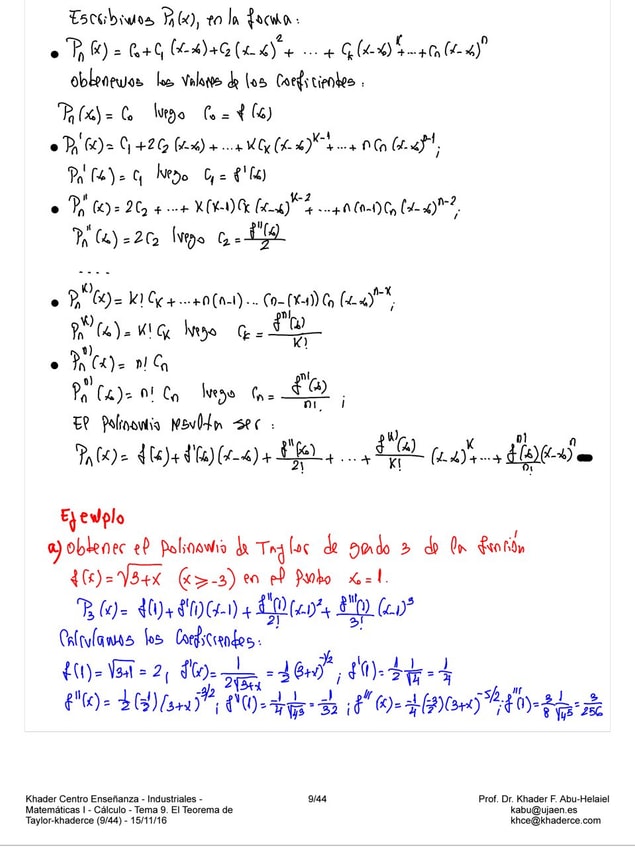 Escribimos Pn(x), en la forma:
• Pn(x) = C₀+C₁(x-x₀)+C₂(x-x₀)²+ ... + Cₖ(x-x₀)ᵏ+...+Cn(x-x₀)ⁿ
obtenemos los valores de los coeficientes:
Pn(x₀) = C₀ luego C₀ = f(x₀)
• Pn'(x) = C₁+2C₂(x-x₀)+...+KCₖ(x-x₀)ᵏ⁻¹+...+nCn(x-x₀)ⁿ⁻¹;
Pn'(x₀) = C₁ luego C₁ = f'(x₀)
• Pn''(x) = 2C₂+...+K(K-1)Cₖ(x-x₀)ᵏ⁻²+...+n(n-1)Cn(x-x₀)ⁿ⁻²;
Pn''(x₀) = 2C₂ luego C₂ = f''(x₀)/2
....
• Pnᴷ⁾(x) = K!Cₖ+...+n(n-1)...(n-(K-1))Cn(x-x₀)ⁿ⁻ᴷ;
Pnᴷ⁾(x₀) = K!Cₖ luego Cₖ = fⁿ⁾(x₀)/K!
• Pnⁿ⁾(x) = n!Cn
Pnⁿ⁾(x₀) = n!Cn luego Cn = fⁿ⁾(x₀)/n! ;
El polinomio resulta ser:
Pn(x) = f(x₀)+f'(x₀)(x-x₀)+f''(x₀)/2!+...+fᴷ⁾(x₀)/K! (x-x₀)ᴷ+...+fⁿ⁾(x₀)/n!(x-x₀)ⁿ
Ejemplo
a) Obtener el polinomio de Taylor de grado 3 de la función
f(x) = √3+x (x≥-3) en el punto x₀=1.
P₃(x) = f(1)+f'(1)(x-1)+f''(1)/2!(x-1)²+f'''(1)/3!(x-1)³
Calculamos los coeficientes:
f(1) = √3+1 = 2, f'(x) = 1/2√3+x = 1/2(3+x)^-1/2; f'(1) = 1/2 1/√4 = 1/4
f''(x) = 1/2(-1/2)(3+x)^-3/2; f''(1) = -1/4 1/√4³ = -1/32; f'''(x) = -1/4(-3/2)(3+x)^-5/2; f'''(1) = 3/8 1/√4⁵ = 3/256
Khader Centro Enseñanza - Industriales - 9/44 Prof. Dr. Khader F. Abu-Helaiel
Matemáticas I - Cálculo - Tema 9. El Teorema de kabu@ujaen.es
Taylor-khaderce (9/44) - 15/11/16 khce@khaderce.com